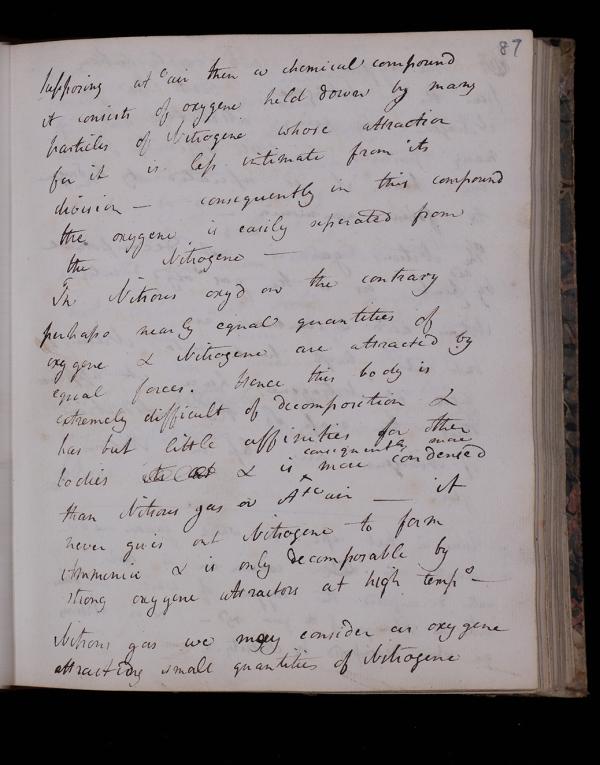 87
Supposing at c air then a chemical compound
it consists of oxygene held down by many
particles of Nitrogene whose attraction
for it is less intimate from its
division — consequently in this compound
the oxygene is easily seperated from
the Nitrogene —
In Nitrous oxyd on the contrary
perhaps nearly equal quantities of
oxygene & Nitrogene are attracted by
equal forces. Hence this body is
extremely difficult of decomposition &
has but little affinities for other
consequently more
bodies & is more condensed
than Nitrous gas or Atc air — it
never gives out Nitrogene to form
Ammonia & is only decomposable by
strong oxygene attractors at high tempo —
Nitrous gas we may consider as oxygene
attracting small quantities of Nitrogene